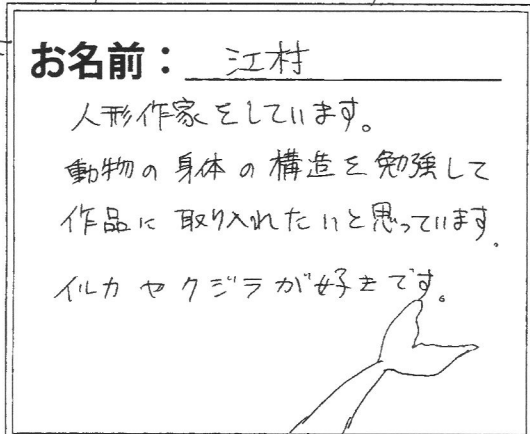 お名前：江村
人形作家をしています。
動物の身体の構造を勉強して
作品に取り入れたいと思っています。
イルカやクジラが好きです。